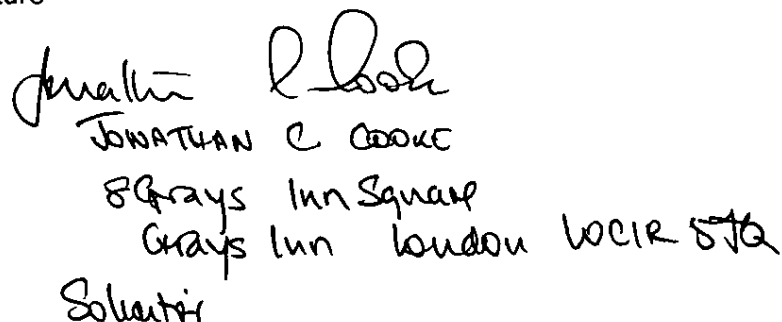 Jonathan C Cooke
JONATHAN C COOKE
8 Grays Inn Square
Grays Inn London WC1R 5JQ
Solicitor